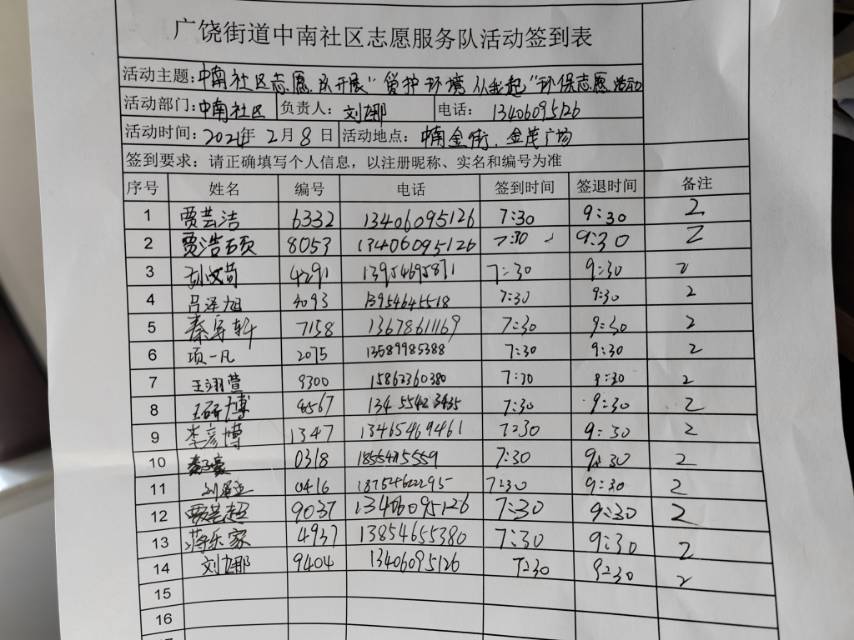 广饶街道中南社区志愿服务队活动签到表
活动主题:中南社区志愿队开展“保护环境从我起”环保志愿活动
活动部门:中南社区 负责人:刘娜 电话: 13406095126
活动时间:2024年 2月 8日 活动地点: 中南金街、金茂广场
签到要求:请正确填写个人信息,以注册昵称、实名和编号为准
序号 姓名 编号 电话 签到时间 签退时间 备注
1 贾芸洁 6332 13406095126 7:30 9:30 2
2 贾浩硕 8053 13406095126 7:30 9:30 2
3 4291 7:30 9:30 2
4 吕泽旭 4093 13954645518 7:30 9:30 2
5 秦宇轩 7158 13678611169 7:30 9:30 2
6 项一凡 2075 13589985388 7:30 9:30 2
7 王翊萱 9300 15862360380 7:30 9:30 2
8 8567 7:30 9:30 2
9 李彦博 1347 13465469461 7:30 9:30 2
10 0318 7:30 9:30 2
11 0416 7:30 9:30 2
12 贾芸超 9037 13406095126 7:30 9:30 2
13 蒋乐家 4937 13854655380 7:30 9:30 2
14 刘娜 9404 13406095126 7:30 9:30 2
15
16